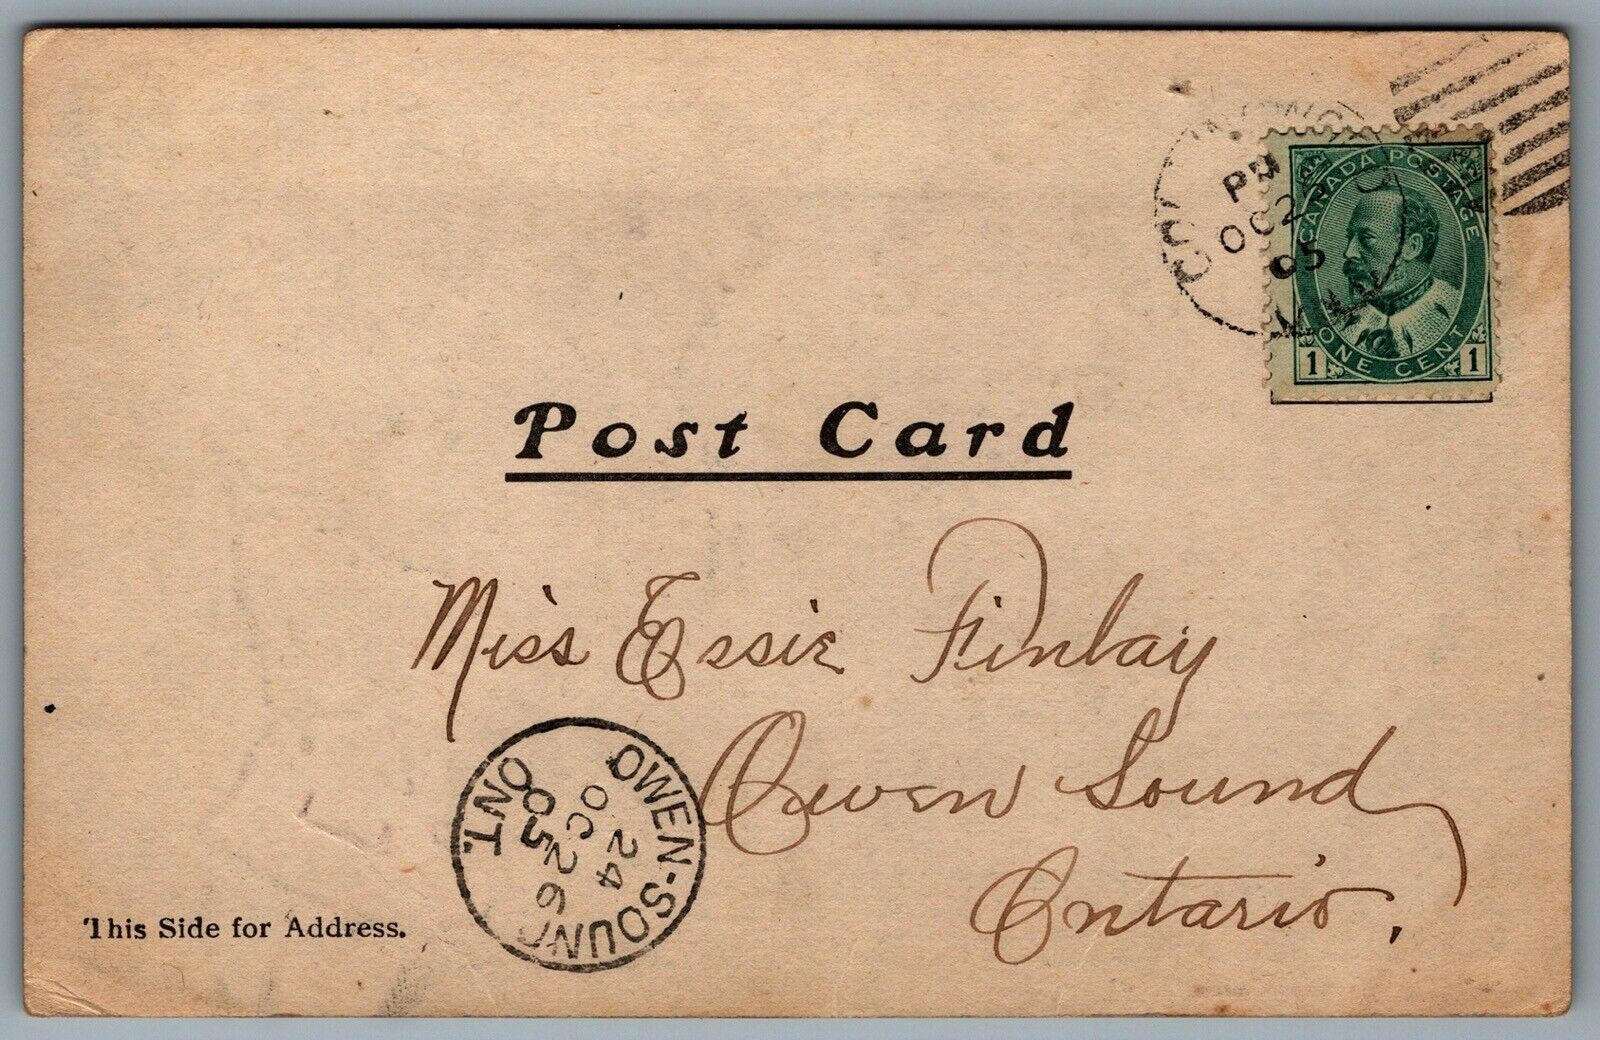 PM
OC 2
05
CANADA POSTAGE
ONE CENT
1 1
Post Card
Miss Essie Finlay
Owen Sound
Ontario.
OWEN-SOUND
24
OC 26
05
ONT.
This Side for Address.